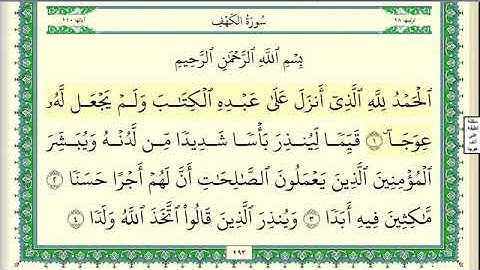 ترتيبها ١٨ سُورَةُ الكَهْفِ آياتها ١١٠
بِسْمِ اللَّهِ الرَّحْمَٰنِ الرَّحِيمِ
الْحَمْدُ لِلَّهِ الَّذِي أَنزَلَ عَلَىٰ عَبْدِهِ الْكِتَابَ وَلَمْ يَجْعَل لَّهُۥ
عِوَجَاۜ ١ قَيِّمًا لِّيُنذِرَ بَأْسًا شَدِيدًا مِّن لَّدُنْهُ وَيُبَشِّرَ
الْمُؤْمِنِينَ الَّذِينَ يَعْمَلُونَ الصَّالِحَاتِ أَنَّ لَهُمْ أَجْرًا حَسَنًا ٢
مَّاكِثِينَ فِيهِ أَبَدًا ٣ وَيُنذِرَ الَّذِينَ قَالُوا اتَّخَذَ اللَّهُ وَلَدًا ٤
٢٩٣